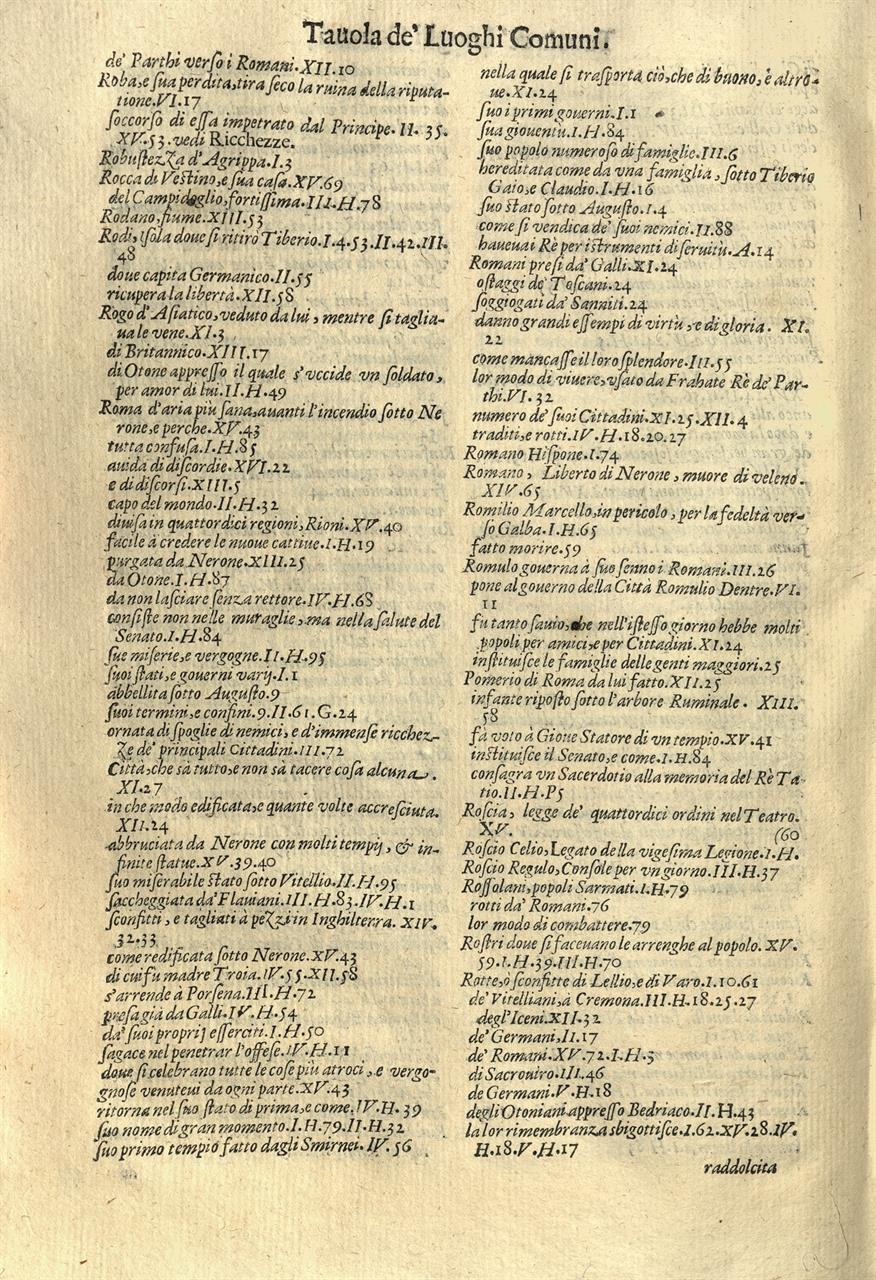 Tauola de' Luoghi Comuni.
de' Parthi verſo i Romani.XII.10
Roba,e ſua perdita,tira ſeco la ruina della riputa-
tione.VI.17
ſoccorſo di eſſa impetrato dal Principe.II.35.
XV.53.vedi Ricchezze.
Robuſtezza d'Agrippa.I.3
Rocca di Veſtino,e ſua caſa.XV.69
del Campidoglio,fortiſſima.III.H.78
Rodano,fiume.XIII.53
Rodi, Iſola doue ſi ritirò Tiberio.I.4.53.II.42.III.
48
doue capita Germanico.II.55
ricupera la libertà.XII.58
Rogo d'Aſiatico,veduto da lui, mentre ſi taglia-
ua le vene.XI.3
di Britannico.XIII.17
di Otone appreſſo il quale s'vccide vn ſoldato,
per amor di lui.II.H.49
Roma d'aria più ſana,auanti l'incendio ſotto Ne
rone,e perche.XV.43
tutta confuſa.I.H.85
auida di diſcordie.XVI.22
e di diſcorſi.XIII.5
capo del mondo.II.H.32
diuiſa in quattordici regioni,Rioni.XV.40
facile à credere le nuoue cattiue.I.H.19
purgata da Nerone.XIII.25
da Otone.I.H.87
da non laſciare ſenza rettore.IV.H.68
conſiſte non nelle muraglie,ma nella ſalute del
Senato.I.H.84
ſue miſerie,e vergogne.II.H.95
ſuoi ſtati,e gouerni varij.I.1
abbellita ſotto Auguſto.9
ſuoi termini,e confini.9.II.61.G.24
ornata di ſpoglie di nemici, e d'immenſe ricchez-
ze de' principali Cittadini.III.72
Città,che sà tutto,e non sà tacere coſa alcuna.
XI.27
in che modo edificata,e quante volte accreſciuta.
XII.24
abbruciata da Nerone con molti tempij, & in-
finite ſtatue.XV.39.40
ſuo miſerabile ſtato ſotto Vitellio.II.H.95
ſaccheggiata da' Flauiani.III.H.83.IV.H.1
ſconfitti, e tagliati à pezzi in Inghilterra. XIV.
32.33
come redificata ſotto Nerone.XV.43
di cui fu madre Troia.IV.55.XII.58
s'arrende à Porſena.III.H.72
preſa già da Galli.IV.H.54
da' ſuoi proprij eſſerciti.I.H.50
ſagace nel penetrar l'offeſe.IV.H.11
doue ſi celebrano tutte le coſe più atroci, e vergo-
gnoſe venuteui da ogni parte.XV.43
ritorna nel ſuo ſtato di prima,e come.IV.H.39
ſuo nome di gran momento.I.H.79.II.H.32
ſuo primo tempio fatto dagli Smirnei.IV.56
nella quale ſi traſporta ciò,che di buono, è altro-
ue.XI.24
ſuo i primi gouerni.I.1
ſua giouentù.I.H.84
ſuo popolo numeroſo di famiglie.III.6
hereditata come da vna famiglia, ſotto Tiberio
Gaio,e Claudio.I.H.16
ſuo ſtato ſotto Auguſto.I.4
come ſi vendica de' ſuoi nemici.II.88
haueua i Rè per iſtrumenti di ſeruitù.A.14
Romani preſi da' Galli.XI.24
oſtaggi de' Toſcani.24
ſoggiogati da' Sanniti.24
danno grandi eſſempi di virtù, e di gloria. XI.
22
come mancaſſe il loro ſplendore.III.55
lor modo di viuere,vſato da Frahate Rè de' Par-
thi.VI.32
numero de' ſuoi Cittadini.XI.25.XII.4
traditi,e rotti.IV.H.18.20.27
Romano Hiſpone.I.74
Romano, Liberto di Nerone, muore di veleno.
XIV.65
Romilio Marcello,in pericolo, per la fedeltà ver-
ſo Galba.I.H.65
fatto morire.59
Romulo gouerna à ſuo ſenno i Romani.III.26
pone al gouerno della Città Romulio Dentre.VI.
11
fu tanto ſauio,che nell'iſteſſo giorno hebbe molti
popoli per amici,e per Cittadini.XI.24
inſtituiſce le famiglie delle genti maggiori.25
Pomerio di Roma da lui fatto.XII.25
infante ripoſto ſotto l'arbore Ruminale. XIII.
58
fà voto à Gioue Statore di vn tempio.XV.41
inſtituiſce il Senato,e come.I.H.84
conſagra vn Sacerdotio alla memoria del Rè Ta-
tio.II.H.P5
Roſcia, legge de' quattordici ordini nel Teatro.
XV.
(60
Roſcio Celio,Legato della vigeſima Legione.I.H.
Roſcio Regulo,Conſole per vn giorno.III.H.37
Roſſolani,popoli Sarmati.I.H.79
rotti da' Romani.76
lor modo di combattere.79
Roſtri doue ſi faceuano le arrenghe al popolo. XV.
59.I.H.39.III.H.70
Rotte,ò ſconfitte di Lellio,e di Varo.I.10.61
de' Vitelliani,à Cremona.III.H.18.25.27
degl'Iceni.XII.32
de' Germani,II.17
de' Romani.XV.72.I.H.5
di Sacrouiro.III.46
de Germani.V.H.18
degli Otoniani appreſſo Bedriaco.II.H.43
la lor rimembranza sbigottiſce.I.62.XV.28.IV.
H.18.V.H.17
raddolcita